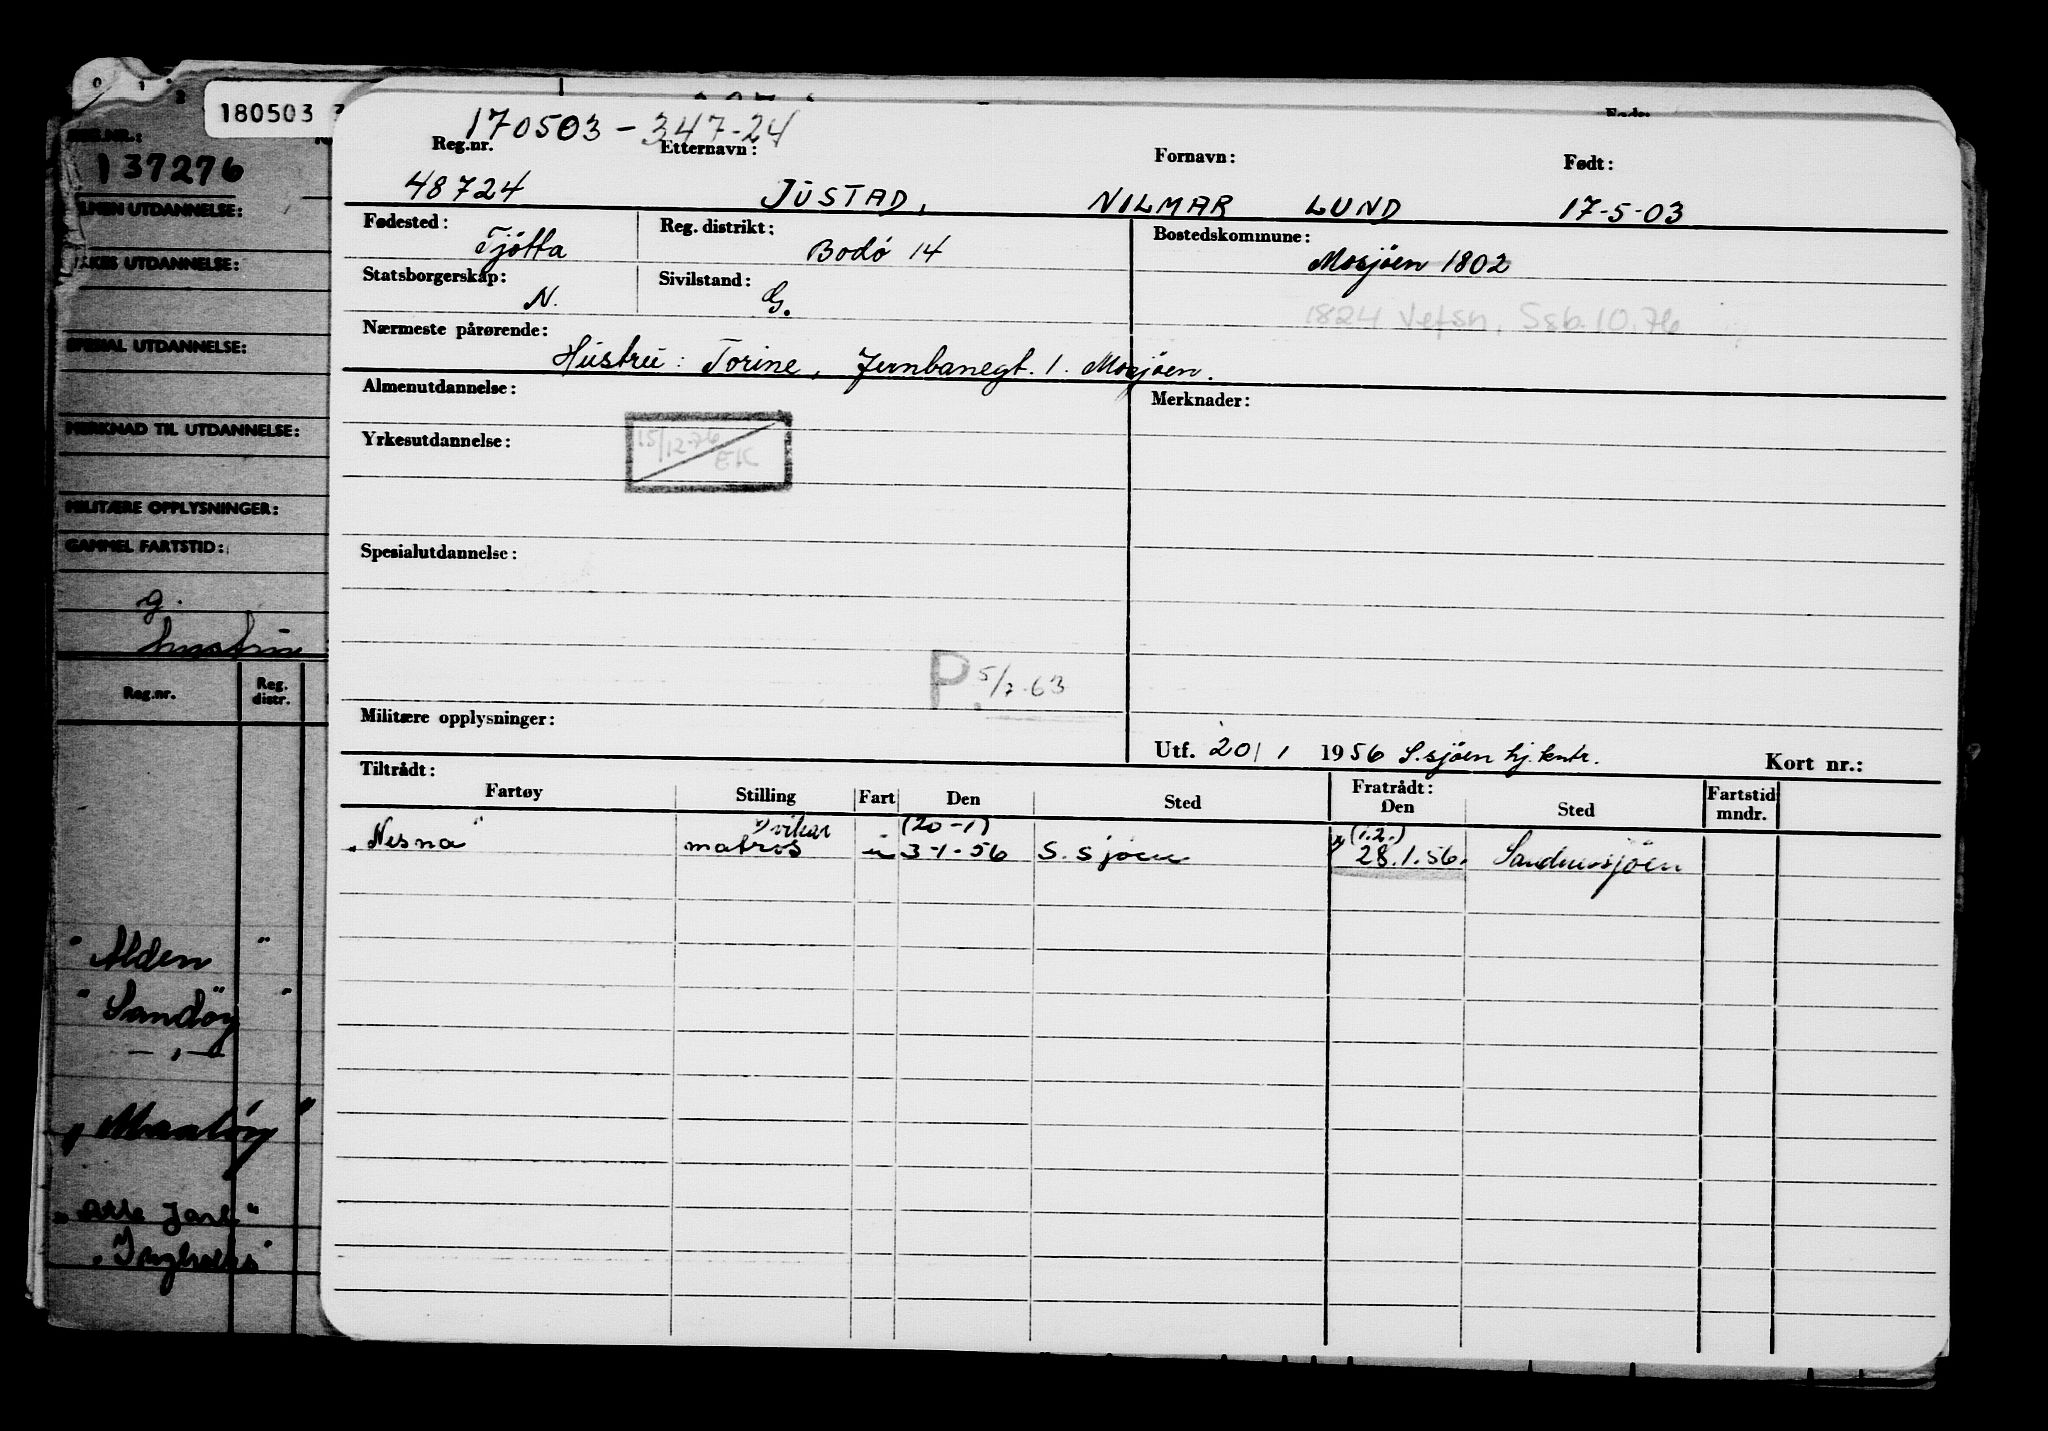 180503 3
REG.NR.:
137276
ALMEN UTDANNELSE:
YRKES UTDANNELSE:
SPESIAL UTDANNELSE:
MERKNAD TIL UTDANNELSE:
MILITÆRE OPPLYSNINGER:
GAMMEL FARTSTID:
g.
Reg.nr. Reg. distr.
"Alden"
"Sandøy"
— " —
"Atle Jarl"
170503 - 347-24
Reg.nr. Etternavn: Fornavn: Født:
48724 JUSTAD, NILMAR LUND 17-5-03
Fødested: Tjøtta Reg. distrikt: Bodø 14 Bostedskommune: Mosjøen 1802
Statsborgerskap: N. Sivilstand: G.
1824 Vefsn, Ssb.10.76
Nærmeste pårørende: Hustru: Torine, Jernbanegt. 1. Mosjøen.
Almenutdannelse: Merknader:
Yrkesutdannelse: 15/12-76 EK
Spesialutdannelse:
P. 5/7-63
Militære opplysninger:
Utf. 20/1 1956 S.sjøen hj.kntr. Kort nr.:
Tiltrådt: Fratrådt:
Fartøy Stilling Fart Den Sted Den Sted Fartstid mndr.
x) vikar (20-1) (1.2.)
"Nesna" matros i 3-1-56 S. sjøen x) 28.1.56. Sandnessjøen